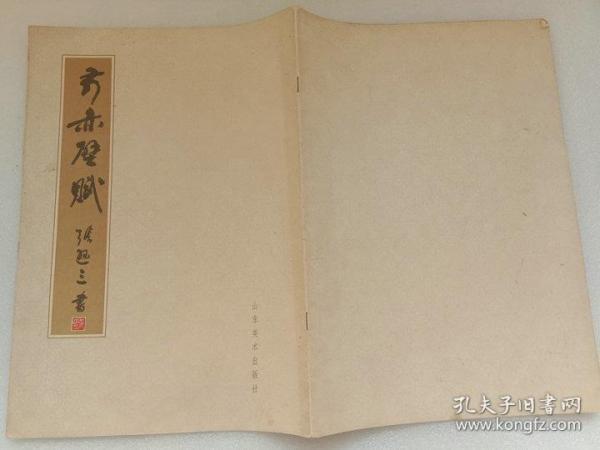 前赤壁赋
张延三书
山东美术出版社
孔夫子旧书网
www.kongfz.com